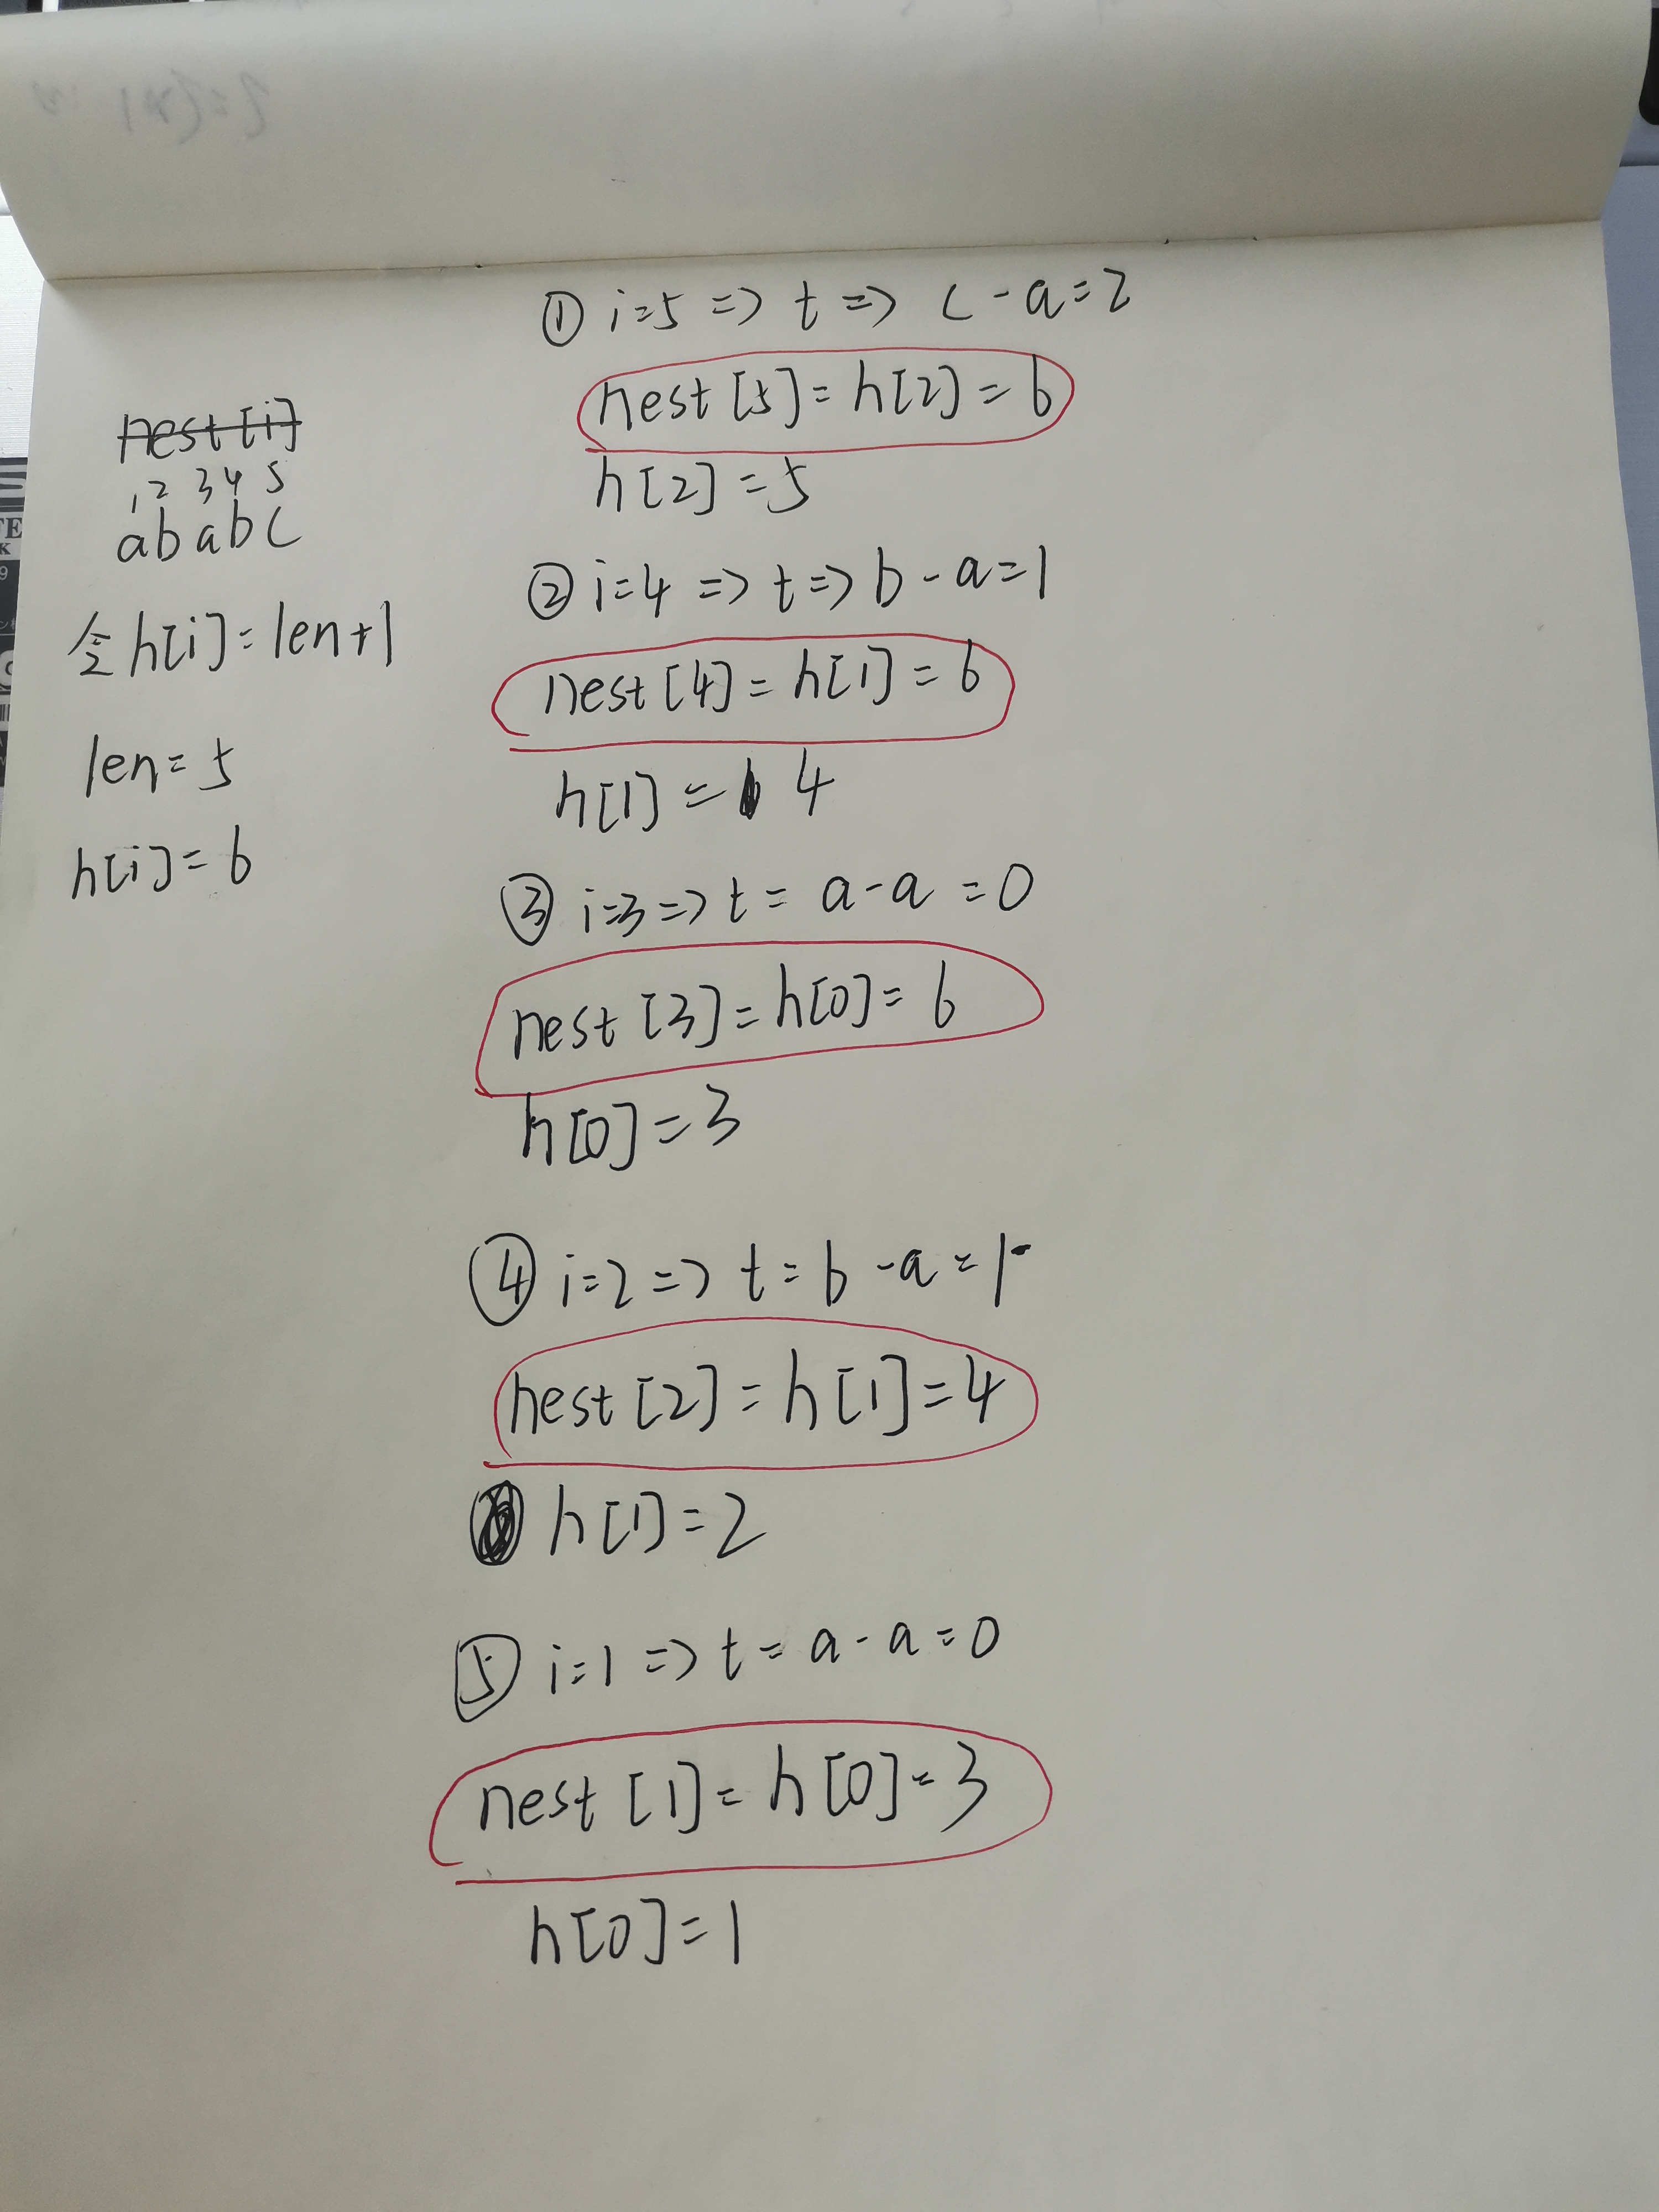 nest[i]
1 2 3 4 5
a b a b c
令 h[i] = len+1
len = 5
h[i] = 6
① i=5 => t => c - a = 2
nest[5] = h[2] = 6
h[2] = 5
② i=4 => t => b - a = 1
nest[4] = h[1] = 6
h[1] = 4
③ i=3 => t = a - a = 0
nest[3] = h[0] = 6
h[0] = 3
④ i=2 => t = b - a = 1
nest[2] = h[1] = 4
h[1] = 2
⑤ i=1 => t = a - a = 0
nest[1] = h[0] = 3
h[0] = 1